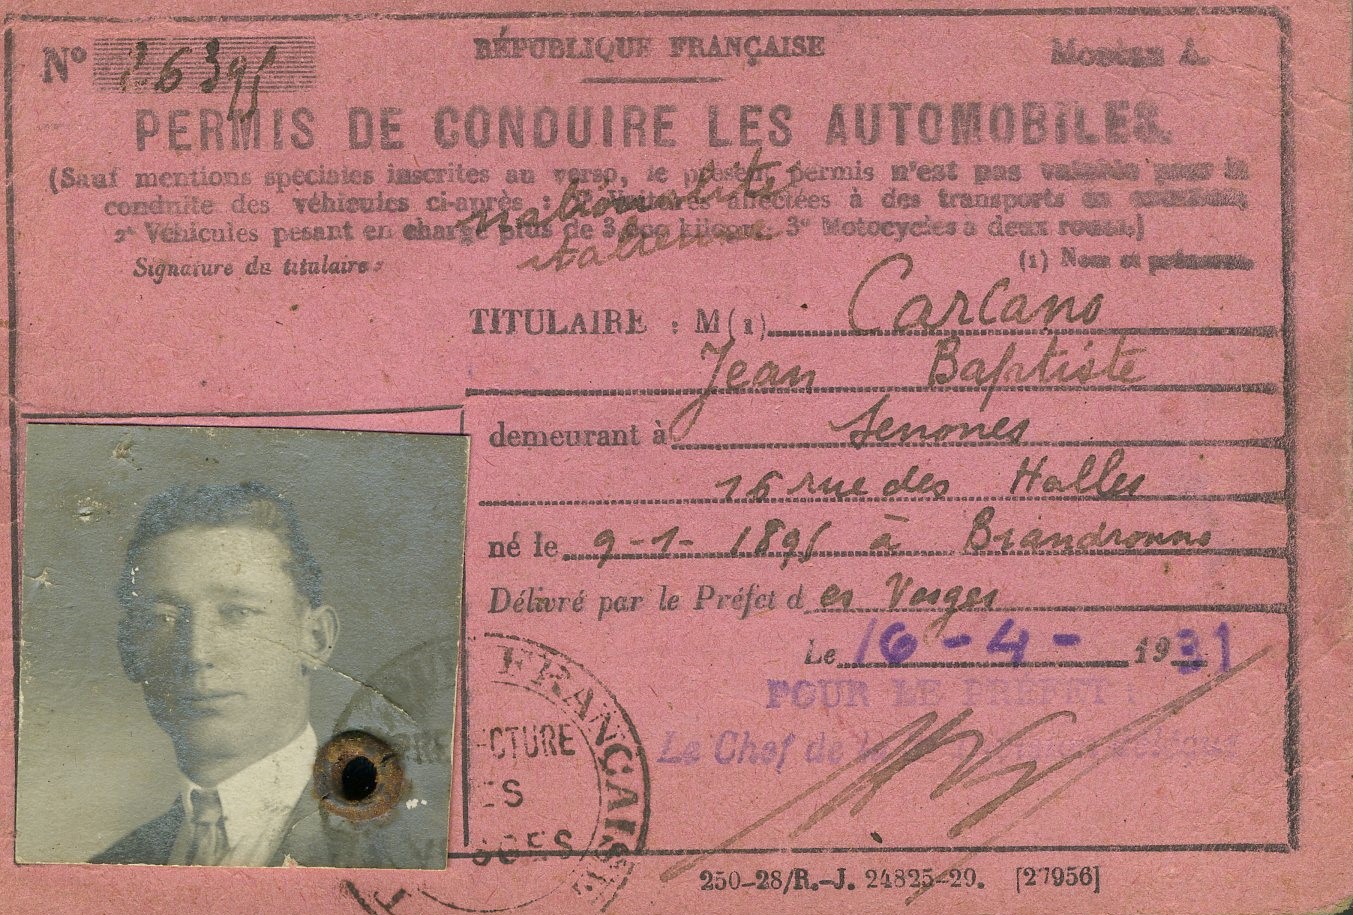 RÉPUBLIQUE FRANÇAISE
Nº 26395
Modèle A.
PERMIS DE CONDUIRE LES AUTOMOBILES.
(Sauf mentions spéciales inscrites au verso, le présent permis n'est pas valable pour la
conduite des véhicules ci-après : 1º Voitures affectées à des transports en commun;
2º Véhicules pesant en charge plus de 3,000 kilogr. 3º Motocycles à deux roues.)
nationalité
italienne
Signature du titulaire:
(1) Nom et prénoms.
TITULAIRE : M(1) Carcano
Jean Baptiste
demeurant à Senones
16 rue des Halles
né le 9-1-1895 à
Délivré par le Préfet des Vosges
Le 16-4-1931
POUR LE PRÉFET:
Le Chef de
FRANÇAISE
PRÉFECTURE
DES
VOSGES
250-28/R.-J. 24825-29. [27956]